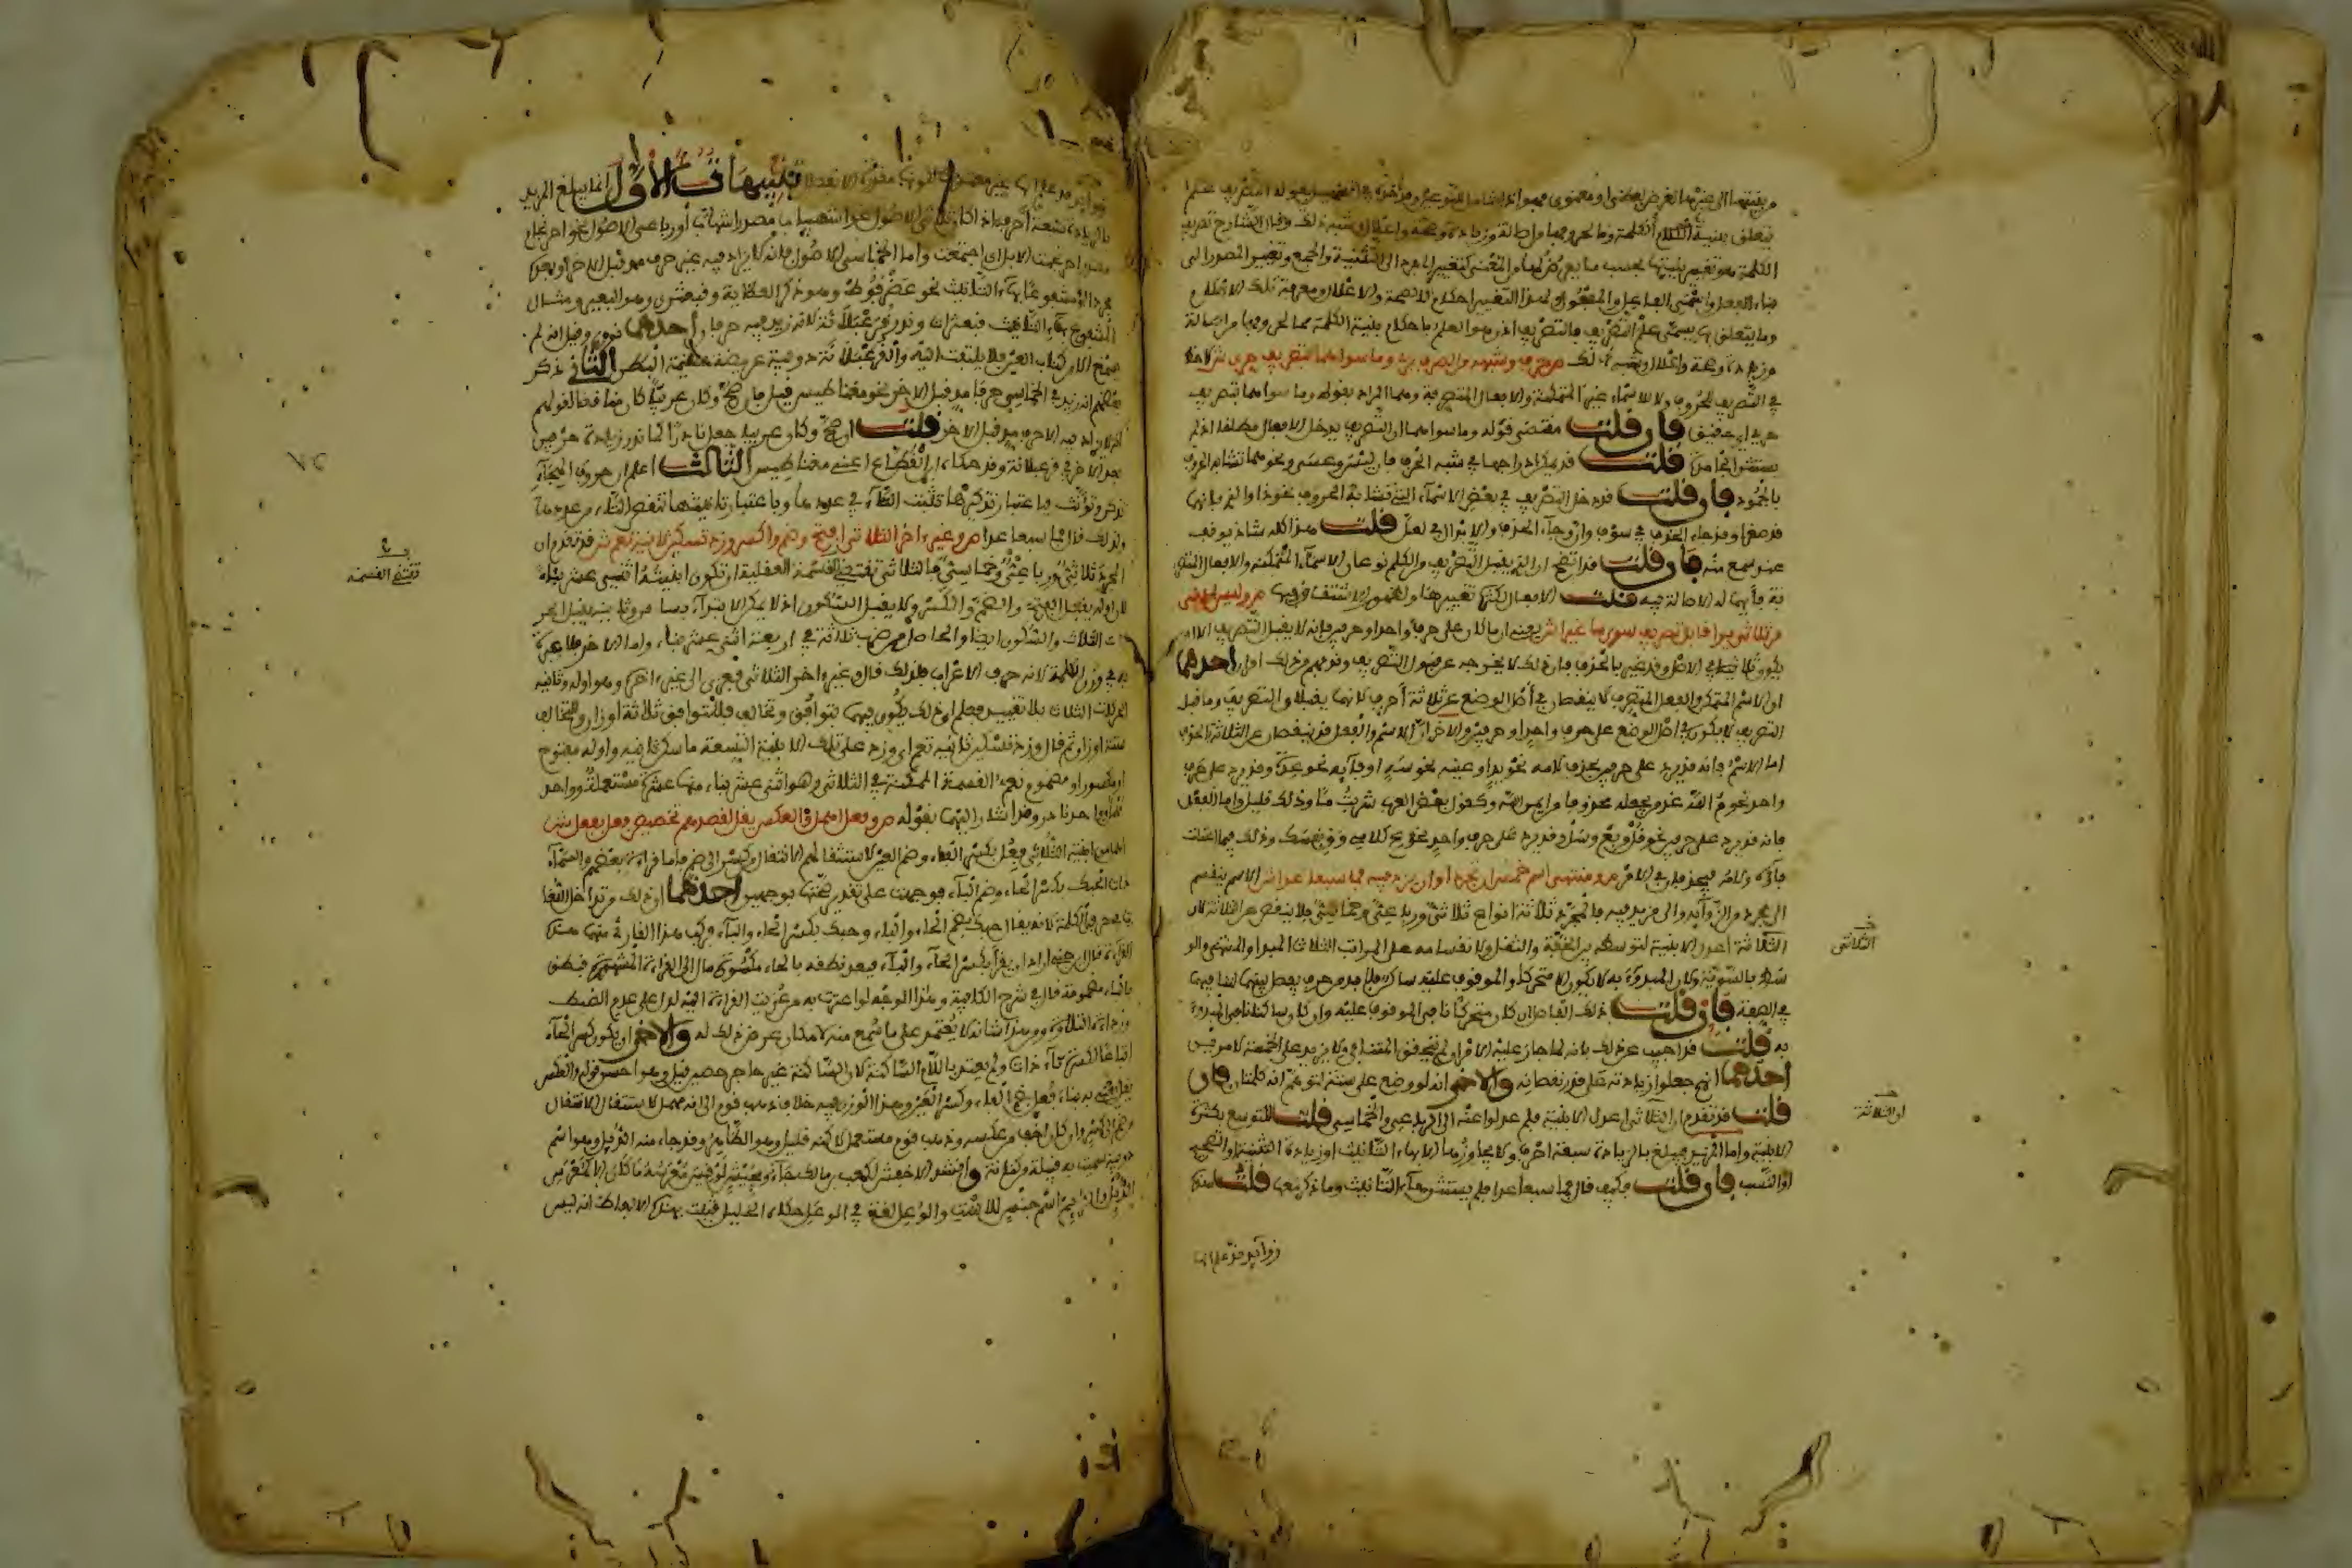 من بنيتها الى غيرها لغرض لفظي او معنوي
تتعلق ببنية الكلمة وما لحروفها من اصالة وزيادة وصحة واعلال وشبه ذلك وقال الشارح تصريف
الكلمة هو تغيير بنيتها بحسب ما يعرض لها من المعنى كتغيير المفرد الى التثنية والجمع وتغيير المصدر الى
بناء الفعل واسمي الفاعل والمفعول ولهذا التغيير احكام كالصحة والاعلال ومعرفة تلك الاحكام
وما يتعلق بها يسمى علم التصريف فالتصريف اذن هو العلم باحكام بنية الكلمة مما لحروفها من اصالة
وزيادة وصحة واعلال وشبه ذلك ص حرف وشبهه من الصرف بري وما سواهما بتصريف حري ش لا حظ
في التصريف للحروف ولا للاسماء غير المتمكنة والافعال المتصرفة وهما المراد بقوله وما سواهما بتصريف
حري اي حقيق فان قلت مقتضى قوله وما سواهما ان التصريف يدخل الافعال مطلقا اذ لم
يستثن الجامد قلت قد يمكن ادراجها في شبه الحرف فان ليس وعسى ونحوهما تشابه الحروف
بالجمود فان قلت قد دخل التصريف في بعض الاسماء التي تشابه الحروف نحو ذا والذي فانها
قد صغرا وقد جاء الحذف في سوف وان وجاء الحذف والابدال في لعل قلت هذا كله شاذ يوقف
عند سمع منه فان قلت قد اتضح ان الذي يقبل التصريف من الكلم نوعان الاسماء المتمكنة والافعال المتصر
فة فايهما له الاصالة فيه قلت الافعال لكثرة تغييرها ولظهور الاشتقاق فيها ص وليس ادنى
من ثلاثي يرى قابل تصريف سوى ما غيرا ش يعني ان ما كان على حرف واحد او حرفين فانه لا يقبل التصريف الا ان
يكون ثلاثيا في الاصل وقد غير بالحذف فان ذلك لا يخرجه عن قبول التصريف وفهم من ذلك امران احدهما
ان الاسم المتمكن والفعل المتصرف لا ينقصان في اصل الوضع عن ثلاثة احرف لانهما يقبلان التصريف وما قبل
التصريف لا يكون في اصل الوضع على حرف واحد او حرفين والاخر ان الاسم والفعل قد ينقصان عن الثلاثة بالحذف
اما الاسم فانه قد يرد على حرفين بحذف لامه نحو يد او عينه نحو سه او فائه نحو عدة وقد يرد على حرف
واحد نحو م الله عند من يجعله محذوفا من ايمن الله وكقول بعض العرب شربت ما وذلك قليل واما الفعل
فانه قد يرد على حرفين نحو قل وبع وسل وقد يرد على حرف واحد نحو ع كلامي وق نفسك وذلك فيما اعلت
فاؤه ولامه فيحذفان في الامر ص ومنتهى اسم خمس ان تجردا وان يزد فيه فما سبعا عدا ش الاسم ينقسم
الى مجرد من الزوائد والى مزيد فيه فالمجرد ثلاثة انواع ثلاثي ورباعي وخماسي فلا ينقص عن الثلاثة لان
الثلاثة اعدل الابنية لتوسطه بين الخفة والثقل ولانقسامه على المراتب الثلاث المبدإ والمنتهى والو
سط بالسوية ولان المبدوء به لا يكون الا متحركا والموقوف عليه ساكن فلا بد من حرف يفصل بينهما لتنافيهما
في الصفة فان قلت ذلك الفاصل ان كان متحركا نافى الموقوف عليه وان كان ساكنا نافى المبدوء
به قلت قد اجيب عن ذلك بانه لما جاز عليه الامران لم تتحقق المنافاة ولا يزيد على الخمسة لامرين
احدهما انهم جعلوا زيادته على قدر نقصانه والاخر انه لو وضع على ستة لتوهم انه كلمتان فان
قلت قد تقدم ان الثلاثي اعدل الابنية فلم عدلوا عنه الى الرباعي والخماسي قلت للتوسع بكثرة
الابنية واما المزيد فيبلغ بالزيادة سبعة احرف ولا يجاوزها الا بهاء التانيث او زيادة التثنية او التصحيح
او النسب فان قلت فكيف قال فما سبعا عدا فلم يستثن هاء التانيث وما ذكر معها قلت هذه
زوائد قد علم انها
الثلاثي
او الثلاثة
زوائد قد علم انها غير مقدرة الانفصال تنبيهات الاول انما يبلغ المزيد
بالزيادة سبعة احرف اذا كان ثلاثي الاصول نحو اشهيباب مصدر اشهاب او رباعي الاصول نحو احرنجام
مصدر احرنجمت الابل اي اجتمعت واما الخماسي الاصول فانه لا يزاد فيه غير حرف مد قبل الاخر او بعده
مجردا او مشفوعا بهاء التانيث نحو عضرفوط وهو ذكر العظاية وقبعثرى وهو البعير ومثال
المشفوع بهاء التانيث قبعثراة وندر قرعبلانة لانه زيد فيه حرفان احدهما نون وقيل انه لم
يسمع الا من كتاب العين فلا يلتفت اليه والقرعبلانة دويبة عريضة عظيمة البطن الثاني ذكر
بعضهم انه زيد في الخماسي حرفا مد قبل الاخر نحو مغناطيس فيقال فان صح وكان عربيا كان ناقضا لقولهم
انه لا يزاد فيه الا حرف مد قبل الاخر قلت ان صح وكان عربيا جعل نادرا كما ندر زيادة حرفين
بعد الاخر في قرعبلانة وقد حكاه ابن القطاع اعني مغناطيس الثالث اعلم ان حروف الهجاء
تذكر وتؤنث فباعتبار تذكيرها تثبت التاء في عددها وباعتبار تانيثها تسقط التاء من عددها
ولذلك قال فما سبعا عدا ص وغير اخر الثلاثي افتح وضم واكسر وزد تسكين ثانيه تعم ش قد تقدم ان
المجرد ثلاثي ورباعي وخماسي فالثلاثي تقتضي القسمة العقلية ان تكون ابنيته اثني عشر بناء
لان اوله يقبل الفتح والضم والكسر ولا يقبل السكون اذ لا يمكن الابتداء بساكن وثانيه يقبل الحر
كات الثلاث والسكون ايضا والحاصل من ضرب ثلاثة في اربعة اثني عشر بناء واما الاخر فلا عبرة
به في وزن الكلمة لانه حرف الاعراب فلذلك قال وغير اخر الثلاثي فعزى الى غير اخره وهو اوله وثانيه
الحركات الثلاث بلا تقييد فعلم ان ذلك يكون فيهما توافق وتخالف فللتوافق ثلاثة اوزان وللتخالف
ستة اوزان ثم قال وزد تسكين ثانيه تعم اي وزد على تلك الابنية التسعة ما سكن ثانيه واوله مفتوح
او مكسور او مضموم تعم القسمة الممكنة في الثلاثي وهو اثني عشر بناء منها عشرة مستعملة وواحد
ص وفعل اهمل والعكس يقل لقصدهم تخصيص فعل بفعل ش
اهمل من ابنية الثلاثي فعل بكسر الفاء وضم العين لاستثقالهم الانتقال من كسر الى ضم واما قراءة بعضهم والسماء
ذات الحبك بكسر الحاء وضم الباء فوجهت على تقدير صحتها بوجهين احدهما ان ذلك من تداخل اللغا
ت في جزءي الكلمة لانه يقال حبك بضم الحاء والباء وحبك بكسر الحاء والباء فركب هذا القارئ منهما هذه
القراءة قال ابن جني اراد ان يقرا بكسر الحاء والباء فبعد نطقه بالحاء مكسورة مال الى القراءة المشهورة فنطق
بالباء مضمومة قال في شرح الكافية وهذا التوجيه لو اعترف به من عزيت القراءة اليه لدل على عدم الضبط
ورداءة التلاوة ومن هذا شانه لا يعتمد على ما سمع منه لامكان عروض ذلك له والاخر ان يكون كسر الحاء
اتباعا لكسرة تاء ذات ولم يعتد باللام الساكنة لان الساكن غير حاجز حصين قيل وهو احسن قوله والعكس
يقل يعني به بناء فعل بضم الفاء وكسر العين وهذا الوزن فيه خلاف ذهب قوم الى انه مهمل لاستثقال الانتقال
من ضم الى كسر وان كان اخف من عكسه وذهب قوم مستعمل لكنه قليل وهو الظاهر وقد جاء منه الدئل وهو اسم
دويبة سميت به قبيلة من كنانة وانشد الاخفش لكعب بن مالك جاءوا بجيش لو قيس معرسه ما كان الا كمعرس
الدئل والرئم اسم جنس للاست والوعل لغة في الوعل حكاه الخليل فثبت بهذه الالفاظ انه ليس
تقتضي القسمة